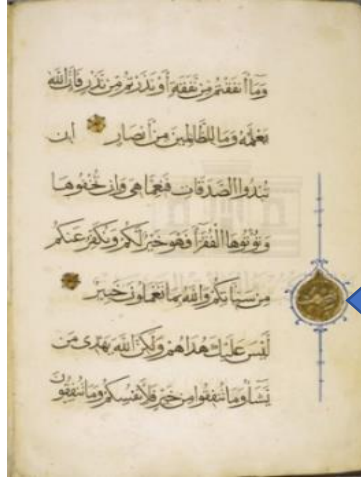 وَمَا أَنفَقْتُم مِّن نَّفَقَةٍ أَوْ نَذَرْتُم مِّن نَّذْرٍ فَإِنَّ اللَّهَ
يَعْلَمُهُ وَمَا لِلظَّالِمِينَ مِنْ أَنصَارٍ إِن
تُبْدُوا الصَّدَقَاتِ فَنِعِمَّا هِيَ وَإِن تُخْفُوهَا
وَتُؤْتُوهَا الْفُقَرَاءَ فَهُوَ خَيْرٌ لَّكُمْ وَيُكَفِّرُ عَنكُم
مِّن سَيِّئَاتِكُمْ وَاللَّهُ بِمَا تَعْمَلُونَ خَبِيرٌ
لَيْسَ عَلَيْكَ هُدَاهُمْ وَلَكِنَّ اللَّهَ يَهْدِي مَن
يَشَاءُ وَمَا تُنفِقُوا مِنْ خَيْرٍ فَلِأَنفُسِكُمْ وَمَا تُنفِقُونَ